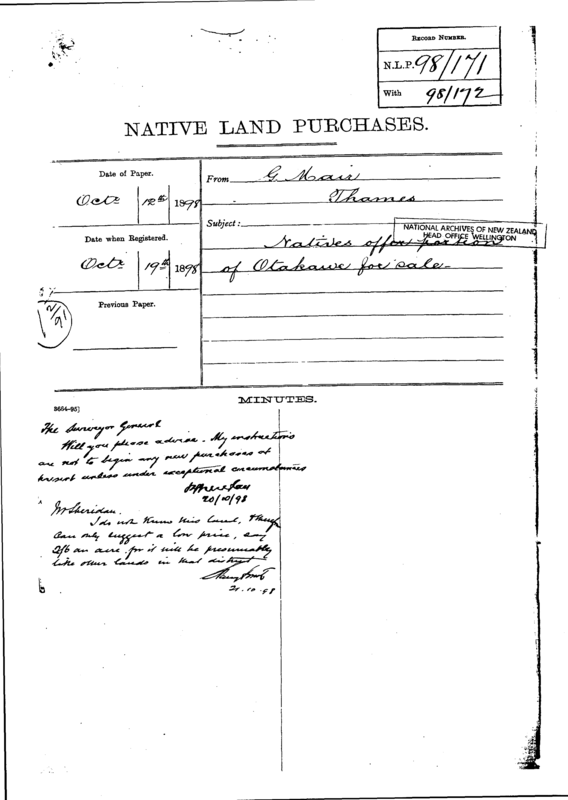 RECORD NUMBER.
N.L.P. 98/171
With 98/172
NATIVE LAND PURCHASES.
Date of Paper.
Octr 12th 1898
Date when Registered.
Octr 19th 1898
Previous Paper.
From G. Mair
Thames
Subject:
NATIONAL ARCHIVES OF NEW ZEALAND
HEAD OFFICE WELLINGTON
Natives offer portion
of Otakawe for sale
MINUTES.
The Surveyor General
Will you please advise. My instructions
are not to begin any new purchases at
present unless under exceptional circumstances
20/10/98
Mr Sheridan.
I do not know this land, &
can only suggest a low price, say
2/6 an acre, for it will be presumably
like other lands in that district
10.98